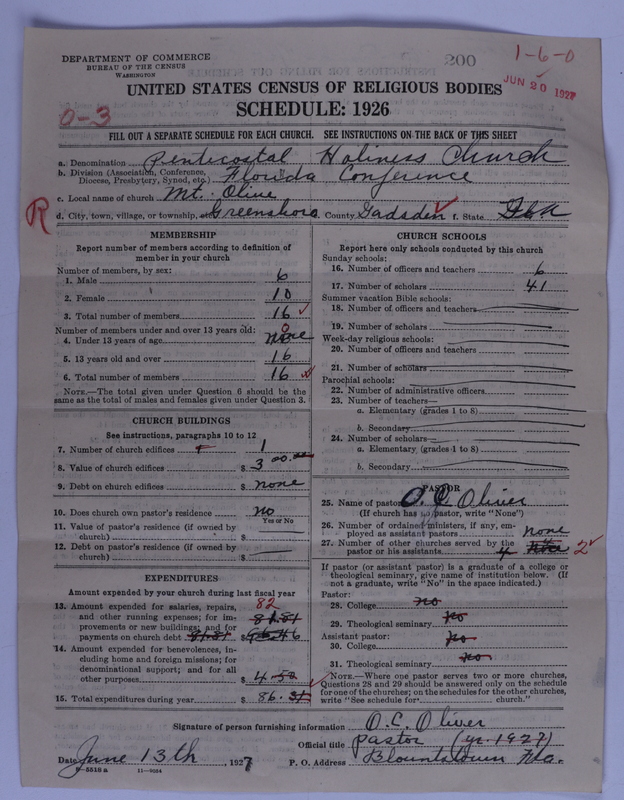 DEPARTMENT OF COMMERCE
BUREAU OF THE CENSUS
WASHINGTON
200
1-6-0
JUN 20 1927
UNITED STATES CENSUS OF RELIGIOUS BODIES
SCHEDULE: 1926
0-3
FILL OUT A SEPARATE SCHEDULE FOR EACH CHURCH. SEE INSTRUCTIONS ON THE BACK OF THIS SHEET
a. Denomination Pentecostal Holiness Church
b. Division (Association, Conference, Diocese, Presbytery, Synod, etc.) Florida Conference
c. Local name of church Mt. Olive
R
d. City, town, village, or township, etc. Greensboro County Gadsden f. State Fla
MEMBERSHIP
Report number of members according to definition of member in your church
Number of members, by sex:
1. Male 6
2. Female 10
3. Total number of members 16
Number of members under and over 13 years old:
4. Under 13 years of age none 0
5. 13 years old and over 16
6. Total number of members 16
NOTE.—The total given under Question 6 should be the same as the total of males and females given under Question 3.
CHURCH BUILDINGS
See instructions, paragraphs 10 to 12
7. Number of church edifices 1
8. Value of church edifices $ 300.00
9. Debt on church edifices $ none
10. Does church own pastor's residence no
Yes or No
11. Value of pastor's residence (if owned by church) $
12. Debt on pastor's residence (if owned by church) $
EXPENDITURES
Amount expended by your church during last fiscal year
13. Amount expended for salaries, repairs, and other running expenses; for improvements or new buildings; and for payments on church debt 81.81 $ 82
14. Amount expended for benevolences, including home and foreign missions; for denominational support; and for all other purposes $ 4.50
15. Total expenditures during year $ 86.31
CHURCH SCHOOLS
Report here only schools conducted by this church
Sunday schools:
16. Number of officers and teachers 6
17. Number of scholars 41
Summer vacation Bible schools:
18. Number of officers and teachers
19. Number of scholars
Week-day religious schools:
20. Number of officers and teachers
21. Number of scholars
Parochial schools:
22. Number of administrative officers
23. Number of teachers—
a. Elementary (grades 1 to 8)
b. Secondary
24. Number of scholars—
a. Elementary (grades 1 to 8)
b. Secondary
PASTOR
25. Name of pastor O. C. Oliver
(If church has no pastor, write "None")
26. Number of ordained ministers, if any, employed as assistant pastors none
27. Number of other churches served by the pastor or his assistants 4 2
If pastor (or assistant pastor) is a graduate of a college or theological seminary, give name of institution below. (If not a graduate, write "No" in the space indicated.)
Pastor:
28. College no
29. Theological seminary no
Assistant pastor:
30. College no
31. Theological seminary no
NOTE.—Where one pastor serves two or more churches, Questions 28 and 29 should be answered only on the schedule for one of the churches; on the schedules for the other churches, write "See schedule for church."
Signature of person furnishing information O. C. Oliver
Official title pastor (yr. 1927)
Date June 13th, 1927 P. O. Address Blountstown Fla.
8-5518 a 11-9064